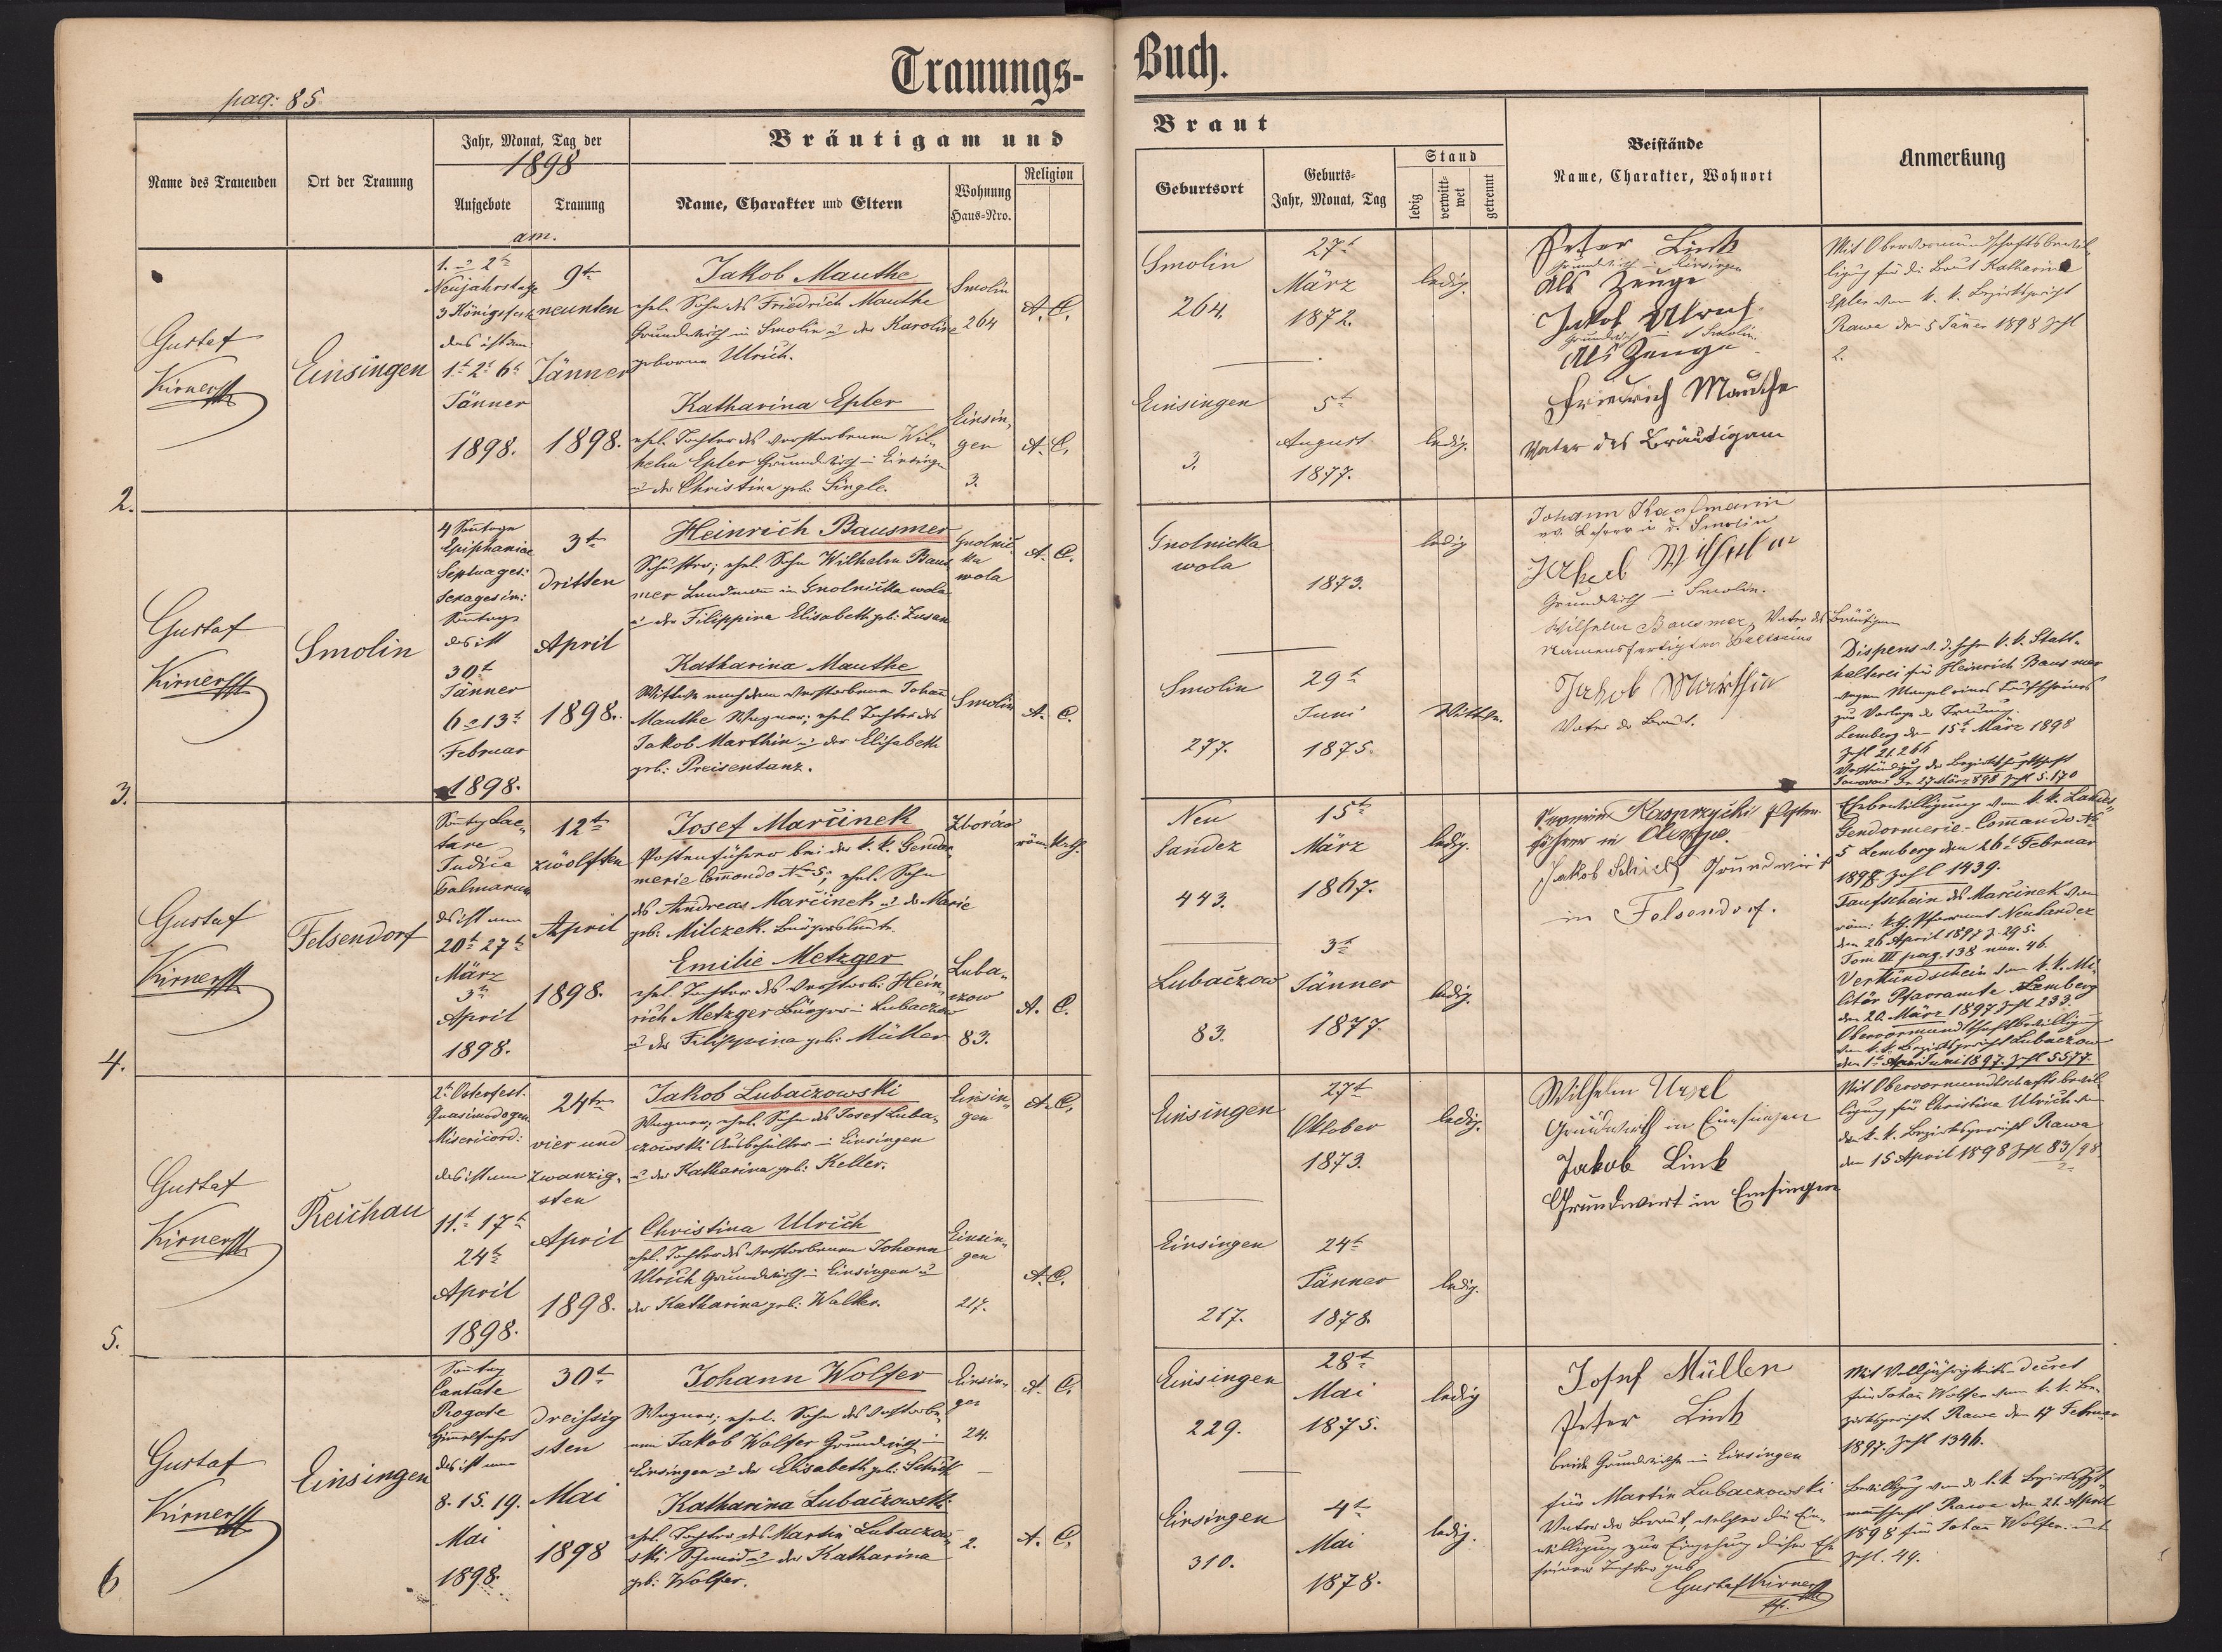 pag: 85.
Trauungs-Buch.
Name des Trauenden
Ort der Trauung
Jahr, Monat, Tag der
1898
Aufgebote
Trauung
am.
Bräutigam und Braut
Name, Charakter und Eltern
Wohnung
Haus-Nro.
Religion
Geburtsort
Geburts-
Jahr, Monat, Tag
Stand
ledig
verwitt-
wet
getrennt
Beistände
Name, Charakter, Wohnort
Anmerkung
2.
Gustaf
Kirner
Einsingen
1. u 2t
Neujahrstage
3 Königsfest
das ist am
1t 2t 6t
Jänner
1898.
9te
neunten
Jänner
1898.
Jakob Mauthe
ehel. Sohn des Friedrich Mauthe
Grundwirth in Smolin u der Karoline
geborene Ulrich.
Smolin
264
A. C.
Katharina Epler
ehel. Tochter des verstorbenen Wil-
helm Epler Grundwirth in Einsingen
u der Christina geb: Single.
Einsin-
gen
3.
A. C.
Smolin
264.
27t
März
1872.
ledig.
Einsingen
3.
5t
August
1877.
ledig.
Peter Link
Grundwirth in Einsingen
als Zeuge
Jakob Ulrich
Grundwirth in Smolin.
als Zeuge
Friedrich Mauthe
Vater des Bräutigam
Mit Obervormundschaftsbewil-
ligung für die Braut Katharina
Epler vom k. k. Bezirksgericht
Rawa den 5 Jänner 1898 Zahl
2.
3.
Gustaf
Kirner
Smolin
4 Sonntage
Epiphaniae
Septuages:
Sexagesim:
Sonntags
das ist
30t
Jänner
6 u 13t
Februar
1898.
3te
dritten
April
1898.
Heinrich Bausmer
Schuster; ehel. Sohn Wilhelm Baus-
mer Landmann in Gnolnicka wola
u der Filippina Elisabeth geb: Zusan
Gnolnic-
ka
wola
A. C.
Katharina Mauthe
Wittwe nach dem verstorbenen Johann
Mauthe Wagner; ehel. Tochter des
Jakob Marthin u der Elisabeth
geb: Preisentanz.
Smolin
A. C.
Gnolnicka
wola
1873.
ledig
Smolin
277.
29t
Juni
1875.
Wittwe.
Johann Kaufmann
ev. Lehrer in Smolin
Jakob Wilhelm
Grundwirth in Smolin.
Wilhelm Bausmer, Vater des Bräutigam
Namensfertigter
Jakob Marthin
Vater der Braut.
Dispens v. d. hohen k. k. Statt-
halterei für Heinrich Bausmer
wegen Mangel eines Taufscheines
zur Vorlage der Trauung.
Lemberg den 15t März 1898
Zahl 21266
Verständigung der Bezirkshauptmannschaft
Jaworow den 27 März 898 Zahl 5.170
4.
Gustaf
Kirner
Felsendorf
Sonntag Lae-
tare
Judica
Palmarum
das ist am
20t 27t
März
3t
April
1898.
12te
zwölften
April
1898.
Josef Marčinek
Postenführer bei der k. k. Gendar-
merie Commando No 5; ehel. Sohn
des Andreas Marčinek u der Marie
geb: Milczek. Bürgersleute.
Zborów
röm. kath.
Emilie Metzger
ehel. Tochter des verstorb. Hein-
rich Metzger Bürger in Lubaczow
u der Filippina geb: Müller
Luba-
czow
83.
A. C.
Neu
Sandez
443.
15te
März
1867.
ledig.
Lubaczow
83.
3te
Jänner
1877.
ledig.
Kasprzycki Posten-
führer in Oleszyce.
Jakob Schick Grundwirt
in Felsendorf.
Ehebewilligung vom k. k. Landes-
Gendarmerie-Commando No
5 Lemberg den 26t Februar
1898 Zahl 1439.
Taufschein des Marčinek vom
röm: kath. Pfarramt Neusandez
den 26 April 1897 Z. 295.
Tom III pag. 138 num. 46.
Verkündschein vom k. k. Mi-
litär Pfarramte Lemberg
den 20. März 1897 Zahl 233.
Obervormundschaftsbewilligung
vom k. k. Bezirksgericht Lubaczow
den 1t Juni 1897. Zahl 5577.
5.
Gustaf
Kirner
Reichau
2te Osterfest.
Quasimodogen
Misericord:
das ist am
11.t 17t
24t
April
1898.
24te
vier und
zwanzig-
sten
April
1898.
Jakob Lubaczowski
Wagner, ehel. Sohn des Josef Luba-
czowski Aushälter in Einsingen
u der Katharina geb: Keller.
Einsin-
gen
A. C.
Christina Ulrich
ehel. Tochter des verstorbenen Johann
Ulrich Grundwirth in Einsingen u
der Katharina geb: Walker.
Einsin-
gen
217.
A. C.
Einsingen
27t
Oktober
1873.
ledig.
Einsingen
217.
24t
Jänner
1878.
ledig.
Wilhelm Ursel
Grundwirth in Einsingen
Jakob Link
Grundwirt in Einsingen
Mit Obervormundschaftsbewil-
ligung für Christina Ulrich vom
k. k. Bezirksgericht Rawa
den 15 April 1898 Zahl 83/98
2
6
Gustaf
Kirner
Einsingen
Sonntag
Cantate
Rogate
Himmelfahrt
das ist am
8. 15. 19.
Mai
1898.
30t
dreissig
sten
Mai
1898
Johann Wolfer
Wagner; ehel. Sohn des verstorbe-
nen Jakob Wolfer Grundwirth in
Einsingen u der Elisabeth geb: Schick
Einsin-
gen
24.
A. C.
Katharina Lubaczowski
ehel. Tochter des Martin Lubaczow-
ski Schmied u der Katharina
geb: Wolfer.
2.
A. C.
Einsingen
229.
28t
Mai
1875.
ledig
Einsingen
310.
4t
Mai
1878.
ledig.
Josef Müller
Peter Link
beide Grundwirthe in Einsingen
für Martin Lubaczowski
Vater der Braut, welcher die Ein-
willigung zur Eingehung dieser Ehe
seiner Tochter gab
Gustaf Kirner
Mit Volljährigkeits-Decret
für Johann Wolfer vom k. k. Be-
zirksgericht Rawa den 17 Februar
1897. Zahl 1346.
Bewilligung von der k. k. Bezirkshaupt-
mannschaft Rawa den 21. April
1898 für Johann Wolfer. unt
Zahl. 49.